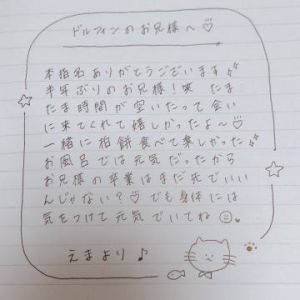 ドルフィンのお兄様へ♡
本指名ありがとうございます✨
半年ぶりのお兄様!※ たま
たま時間が空いたって会い
に来てくれて嬉しかったよ〜♡
一緒に柏餅食べて楽しかった✨
お風呂では元気だったから
お兄様の卒業はまだ先でいい
んじゃない?♡でも身体には
気をつけて元気でいてね☺♡
えまより♪